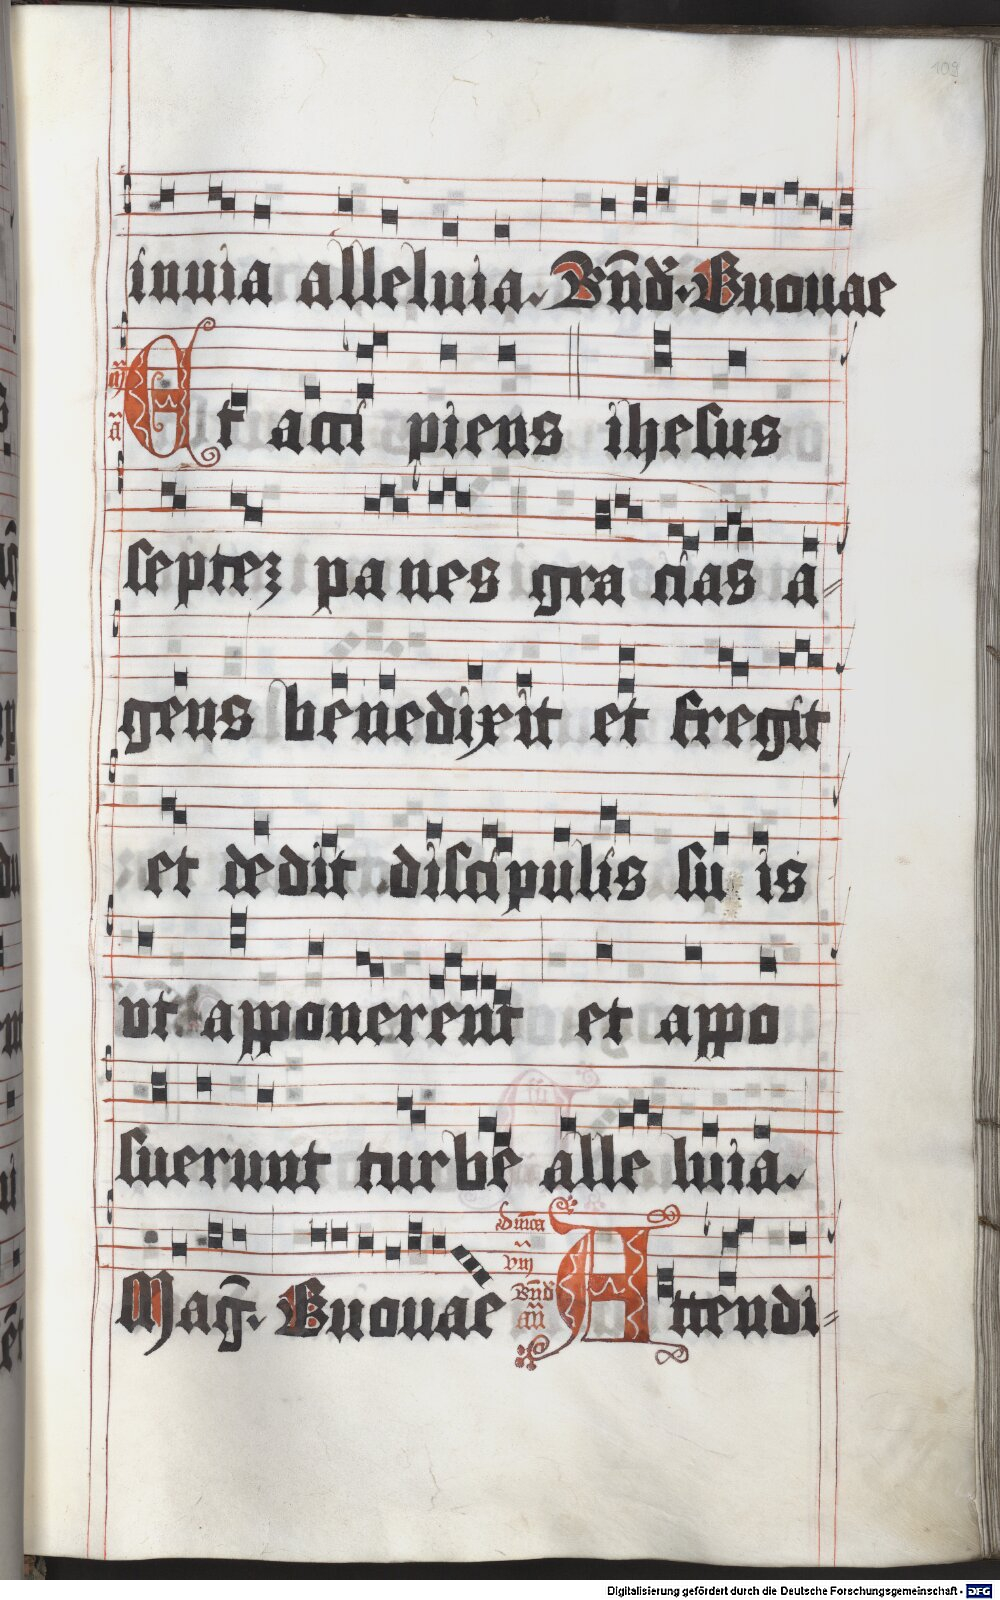 109
inuia alleluia. Bn̄d̄. Euouae
añ
Et acci piens ihesus
septeʒ pa nes gra cias a
gens benedixit et fregit
et dedit discipulis su is
vt apponerent et appo
suerunt turbe alle luia.
Dn̄ica viij Bn̄d̄ an̄
Mag̃. Euouae Attendi
Digitalisierung gefördert durch die Deutsche Forschungsgemeinschaft - DFG